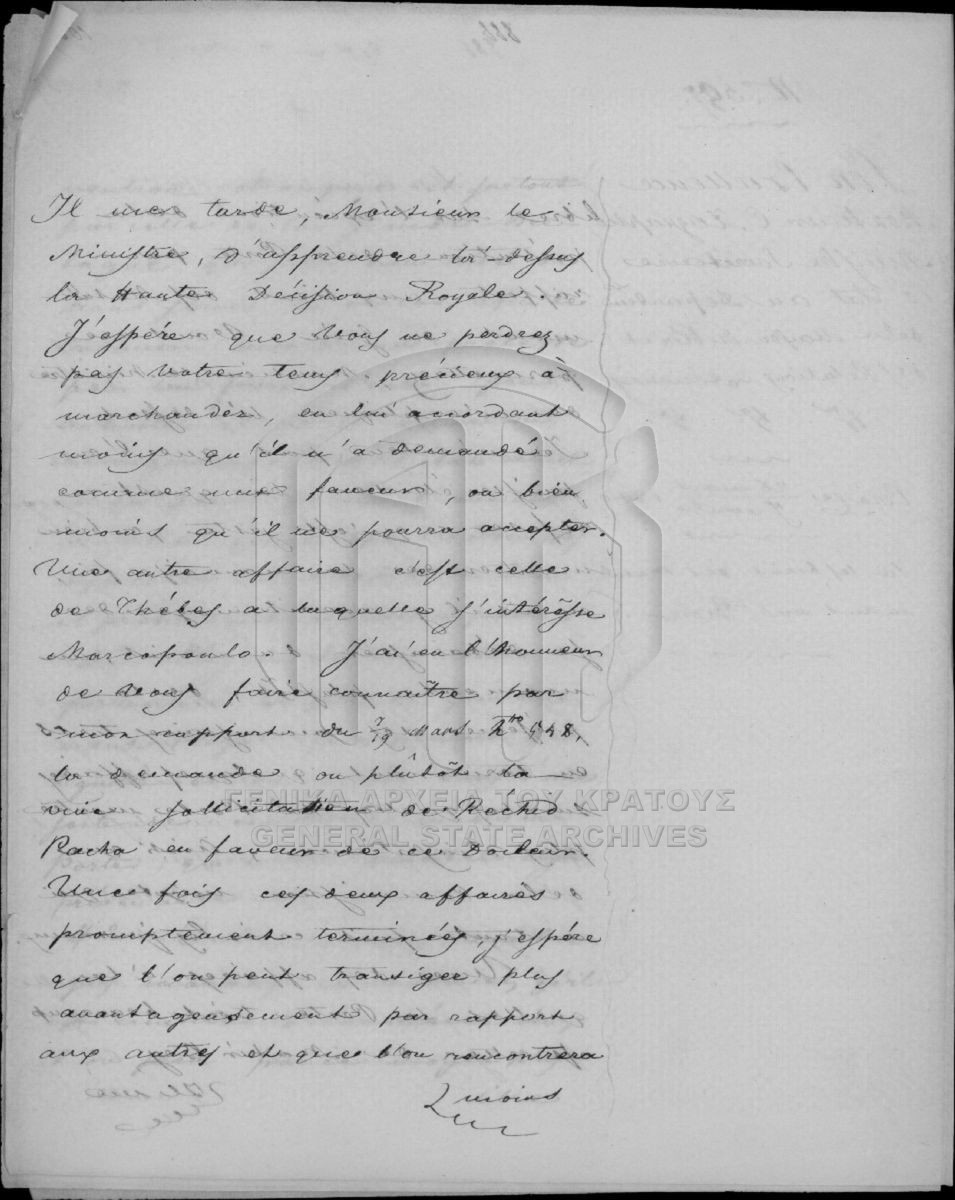 Il me tarde, Monsieur le
Ministre, d'apprendre là-dessus
la Haute Décision Royale.
J'espére que Vous ne perdrez
pas Votre tems précieux à
marchandér, en lui accordant
moins qu'il n'a demandé
comme une faveur, ou bien
moins qu'il ne pourra accepter.
Une autre affaire c'est celle
de Thébes à laquelle s'intéresse
Marcopoulo. J'ai eu l'honneur
de Vous faire connaître par
mon rapport du 7/19 Mars Nro 548,
la demande ou plûtôt la
vive sollicitation de Réchid
Pacha en faveur de ce Docteur.
Une fois ces deux affaires
promptement terminées, j'espére
que l'on peut transiger plus
avantageusement par rapport
aux autres et que l'on rencontrera
moins
ΓΕΝΙΚΑ ΑΡΧΕΙΑ ΤΟΥ ΚΡΑΤΟΥΣ
GENERAL STATE ARCHIVES